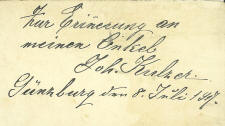 Zur Erinerung an
meinen Enkel
Joh. Kulzer.
Günzburg den 8. Juli